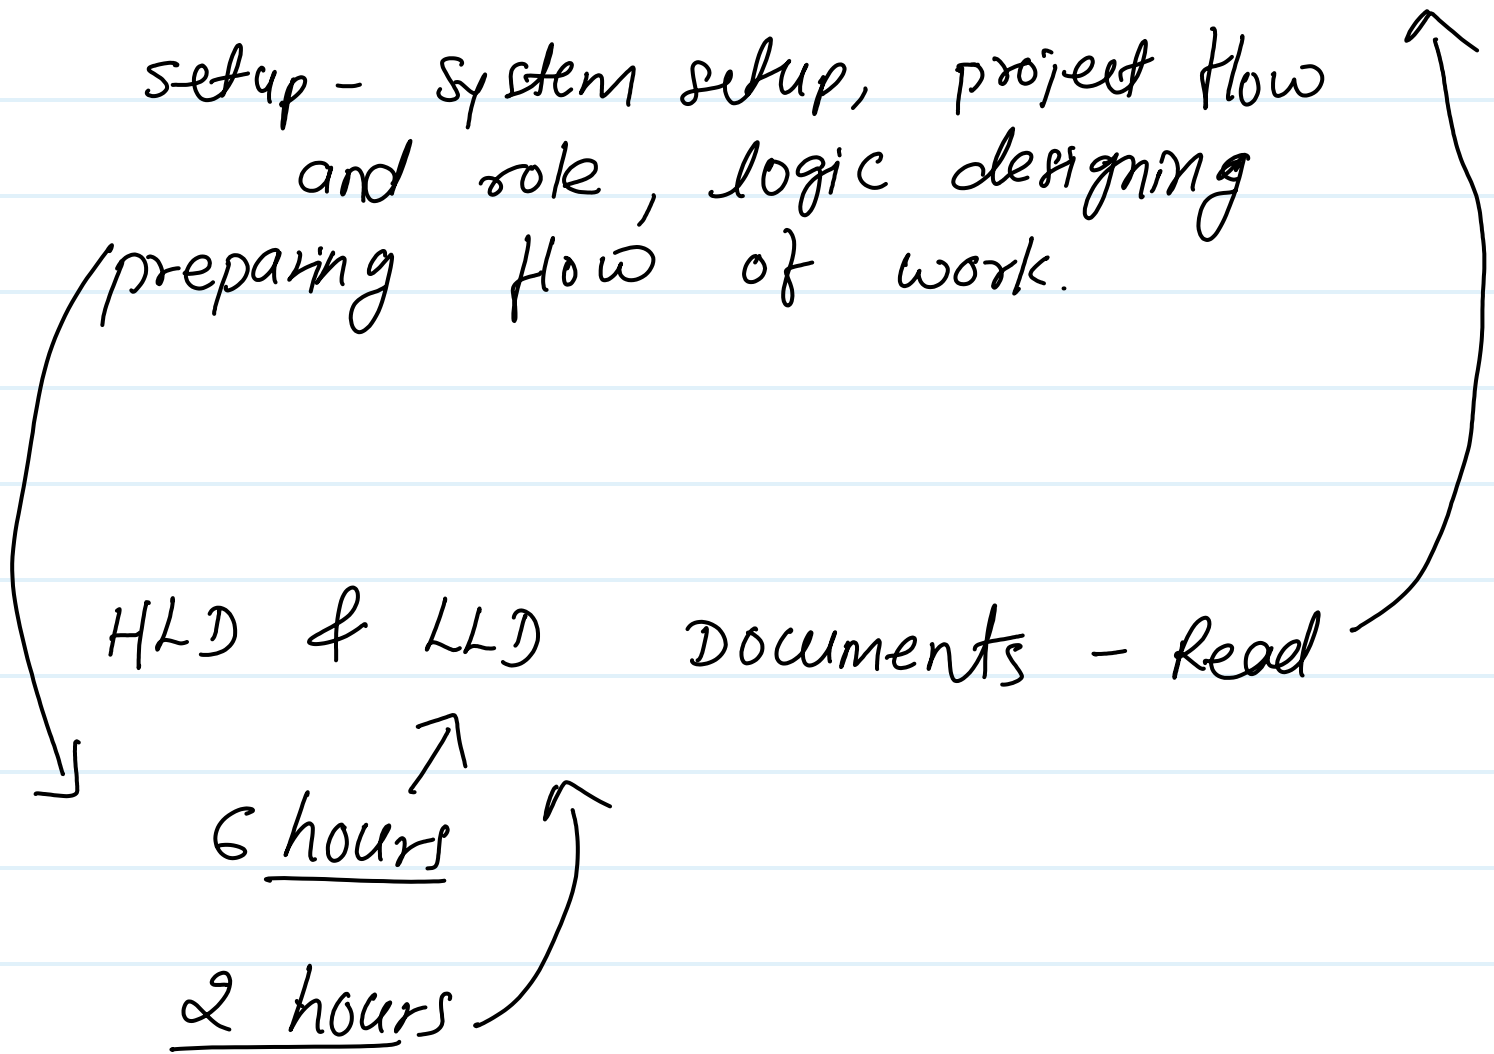 setup - system setup, project flow
and role, logic designing
preparing flow of work.
HLD & LLD Documents - Read
6 hours
2 hours